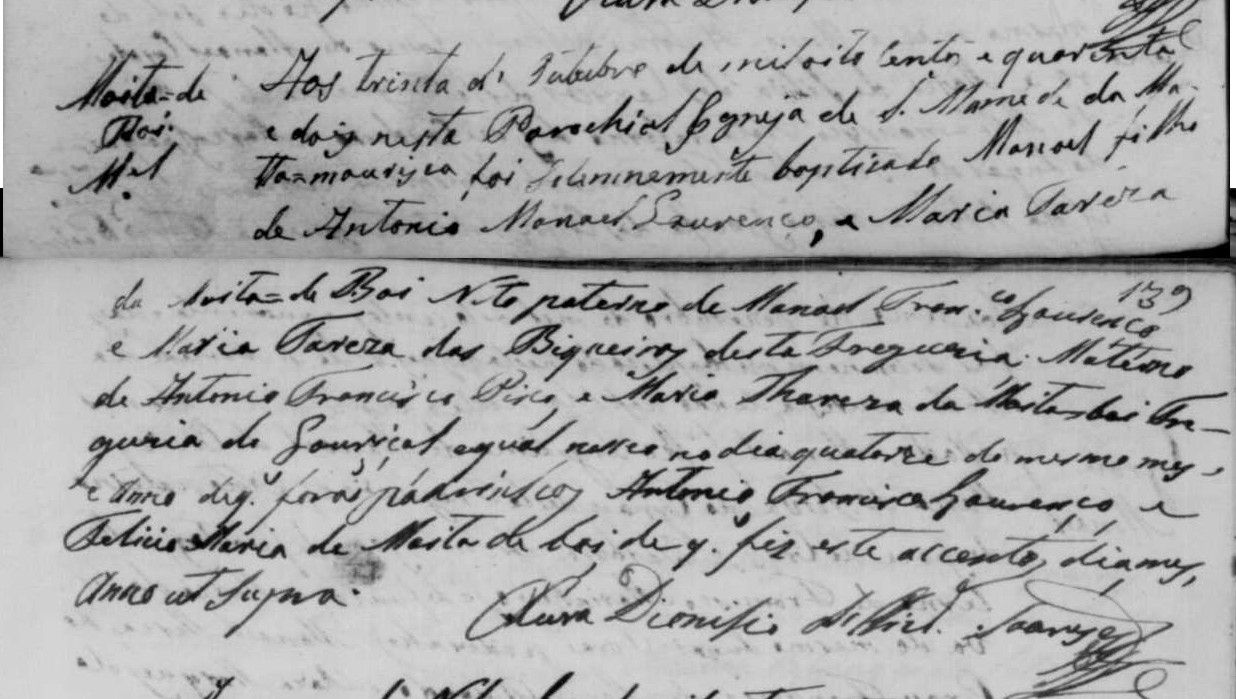 Moita=de
Boi
Mel
Aos trinta d' Outubro de mil oito centos e quarenta
e dois nesta Parochial Igreja de S. Mamede da Ma-
tta=mourisca foi solemnemente baptizado Manoel filho
de Antonio Manoel Lourenço, e Maria Tareza
139
da Moita=de Boi Neto paterno de Manoel Fran.co Lourenço
e Maria Tareza das Biqueiras desta Freguezia. Materno
de Antonio Francisco e Maria Thareza da Moita boi Fre-
guezia do Louriçal o qual nasceo no dia quatorze do mesmo mez,
e Anno de q. forão padrinhos Antonio Francisco Lourenço e
Felicia Maria de Moita de boi de q. fiz este accento, dia mez,
Anno ut supra.
O Cura Dionisio Soares